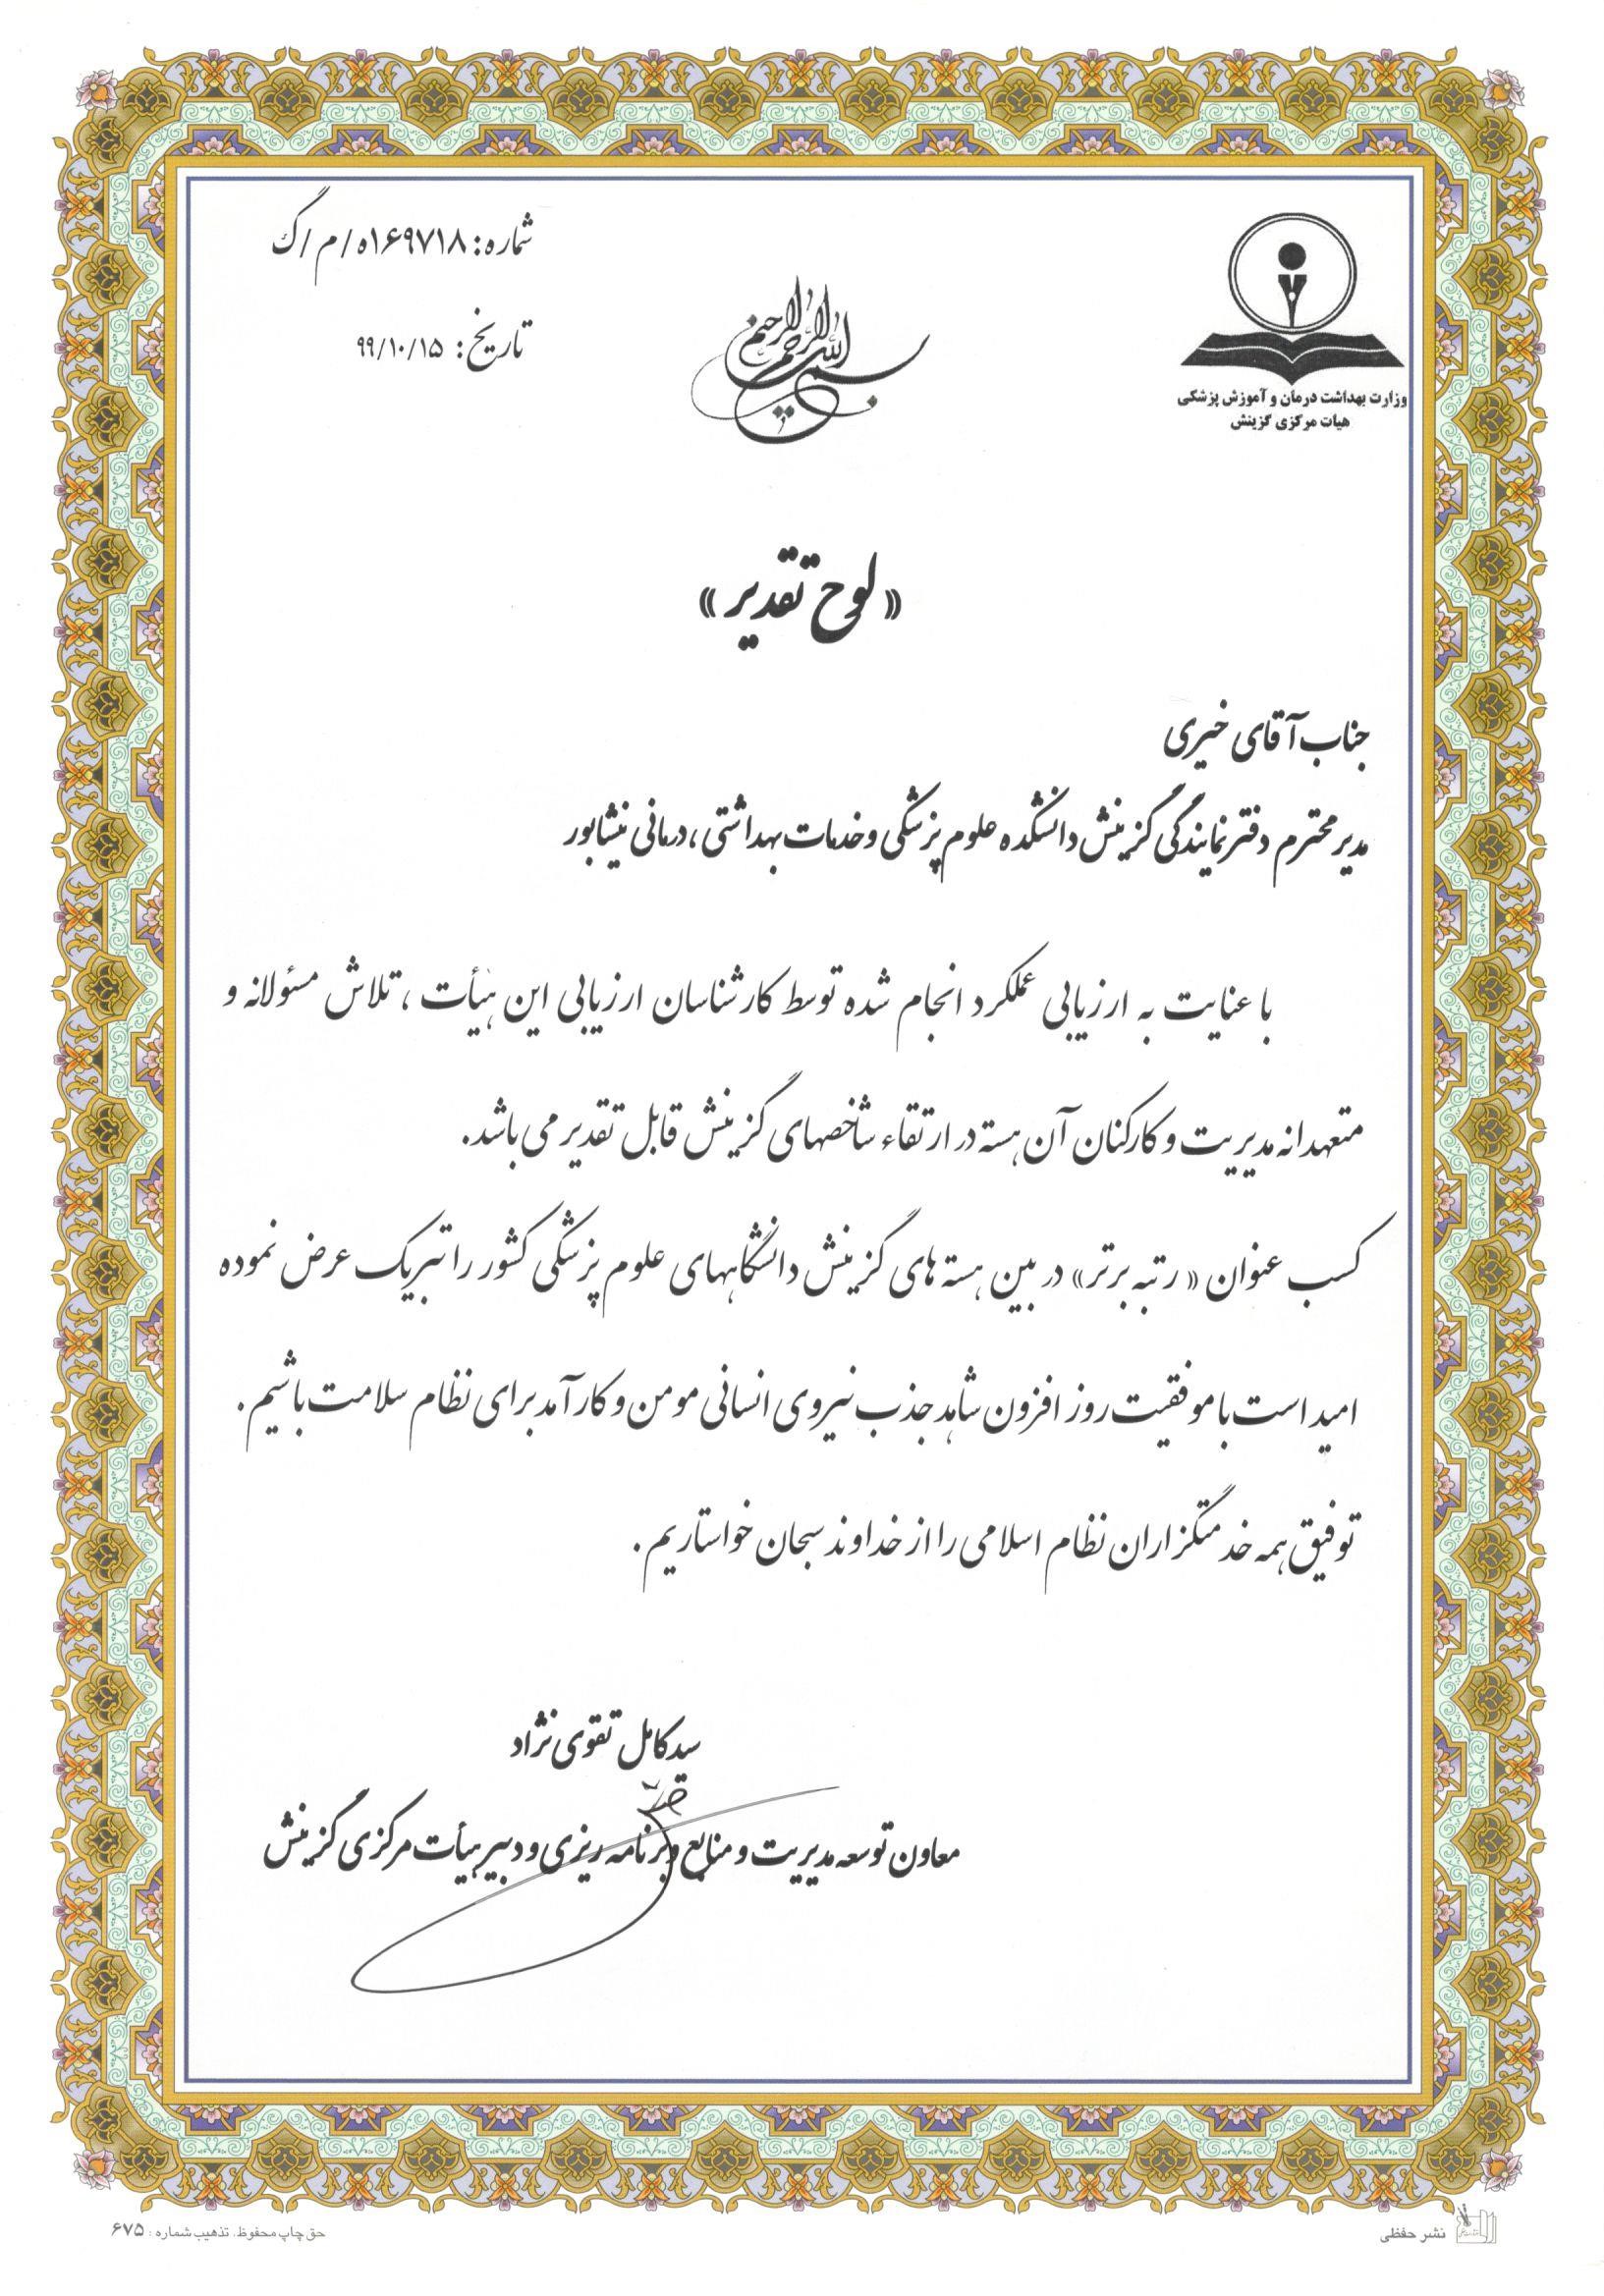 شماره: ۱۶۹۷۱۸ه/م/گ
تاریخ: ۹۹/۱۰/۱۵
بسم الله الرحمن الرحیم
وزارت بهداشت درمان و آموزش پزشکی
هیات مرکزی گزینش
«لوح تقدیر»
جناب آقای خیری
مدیر محترم دفتر نمایندگی گزینش دانشکده علوم پزشکی و خدمات بهداشتی، درمانی نیشابور
با عنایت به ارزیابی عملکرد انجام شده توسط کارشناسان ارزیابی این هیأت، تلاش مسئولانه و
متعهدانه مدیریت و کارکنان آن هسته در ارتقاء شاخصهای گزینش قابل تقدیر می باشد.
کسب عنوان «رتبه برتر» در بین هسته های گزینش دانشگاههای علوم پزشکی کشور را تبریک عرض نموده
امید است با موفقیت روز افزون شاهد جذب نیروی انسانی مومن و کارآمد برای نظام سلامت باشیم.
توفیق همه خدمتگزاران نظام اسلامی را از خداوند سبحان خواستاریم.
سید کامل تقوی نژاد
معاون توسعه مدیریت و منابع و برنامه ریزی و دبیر هیأت مرکزی گزینش
نشر حفظی
حق چاپ محفوظ. تذهیب شماره: ۶۷۵